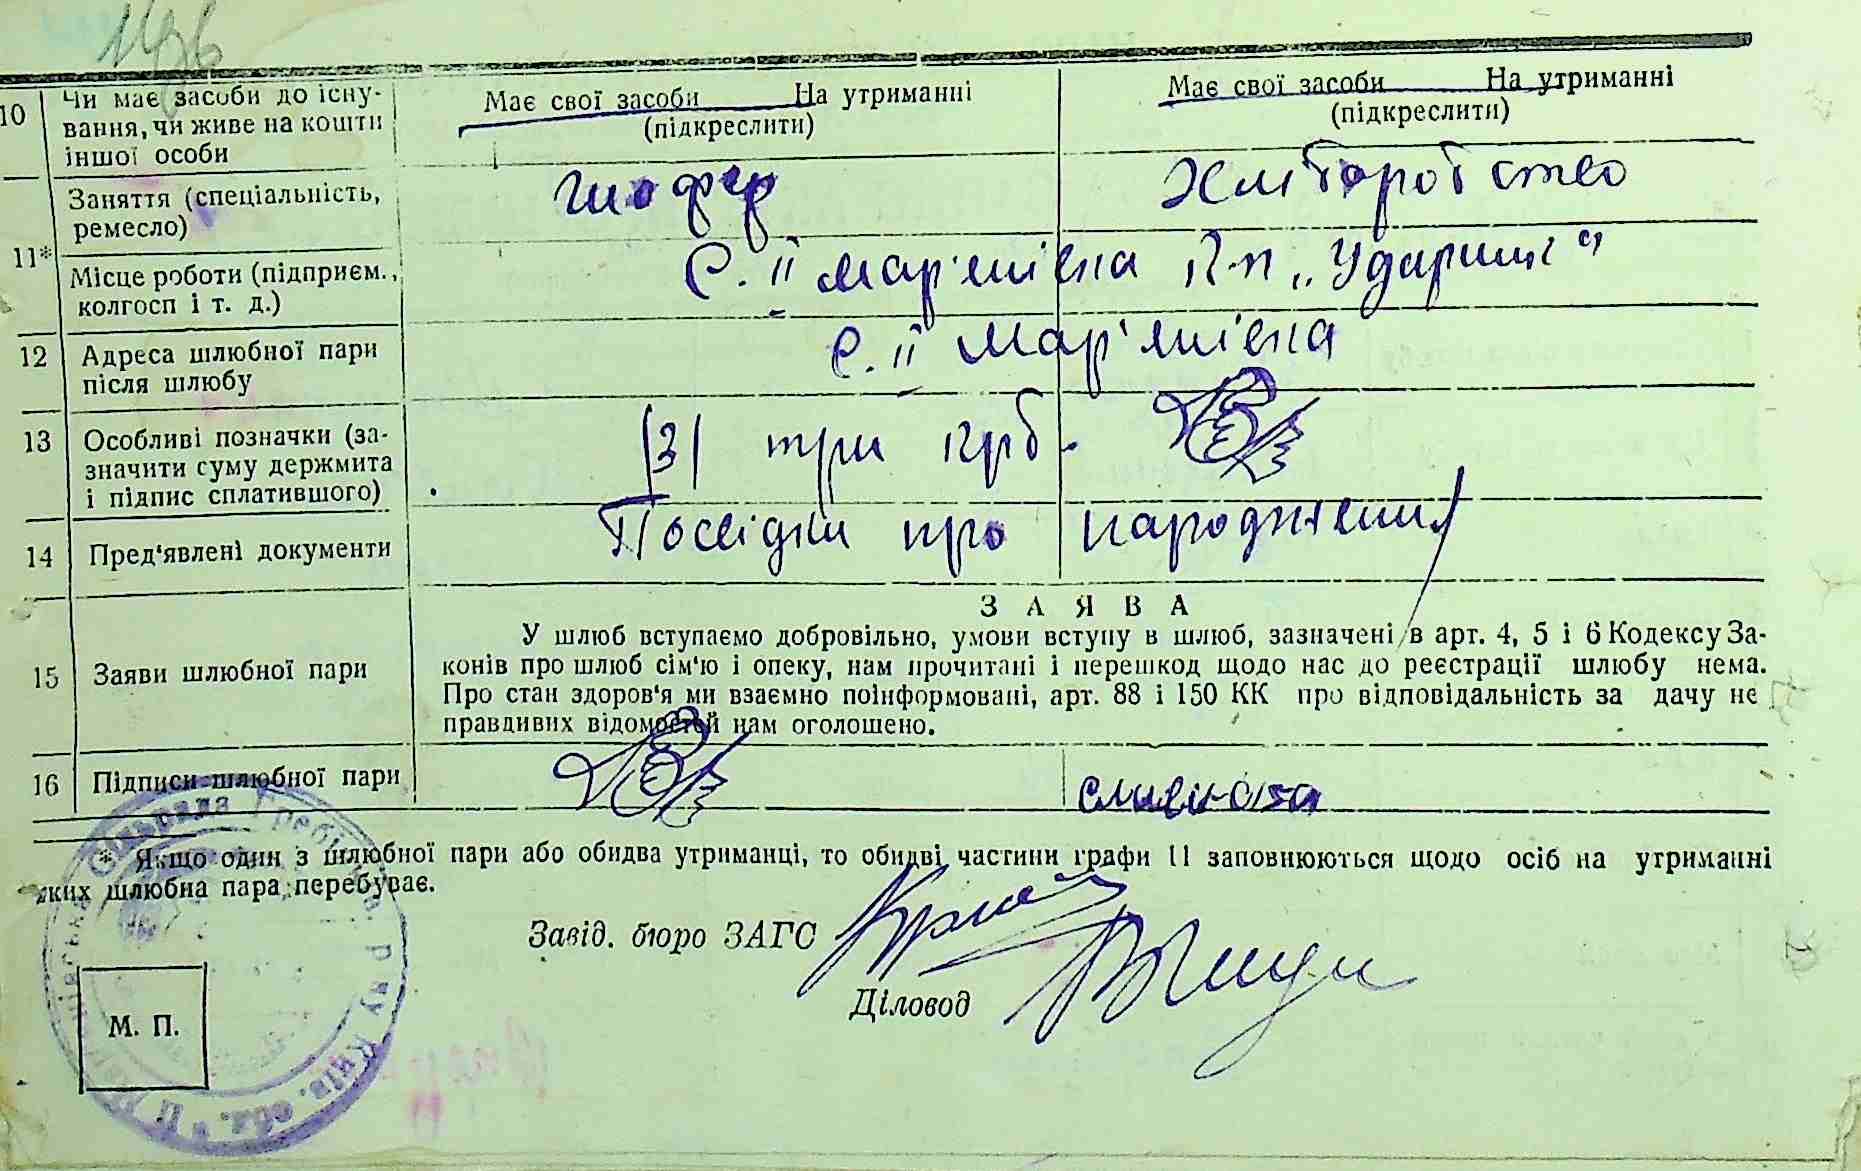 1196
10 Чи має засоби до існу-
вання, чи живе на кошти
іншої особи
Має свої засоби На утриманні
(підкреслити)
Має свої засоби На утриманні
(підкреслити)
11* Заняття (спеціальність,
ремесло)
шофер
Хліборобство
Місце роботи (підприєм.,
колгосп і т. д.)
С. ІІ Мар'янівка к-п „Ударник"
12 Адреса шлюбної пари
після шлюбу
с. ІІ Мар'янівка
13 Особливі позначки (за-
значити суму держмита
і підпис сплатившого)
/3/ три крб.
14 Пред'явлені документи
Посвідки про народження
15 Заяви шлюбної пари
ЗАЯВА
У шлюб вступаємо добровільно, умови вступу в шлюб, зазначені в арт. 4, 5 і 6 Кодексу За-
конів про шлюб сім'ю і опеку, нам прочитані і перешкод щодо нас до реєстрації шлюбу нема.
Про стан здоров'я ми взаємно поінформовані, арт. 88 і 150 КК про відповідальність за дачу не
правдивих відомостей нам оголошено.
16 Підписи шлюбної пари
* Якщо один з шлюбної пари або обидва утриманці, то обидві частини графи 11 заповнюються щодо осіб на утриманні
яких шлюбна пара перебуває.
Завід. бюро ЗАГС
Діловод
М. П.
Сільрада Гребінків. р-ну Київ. обл.